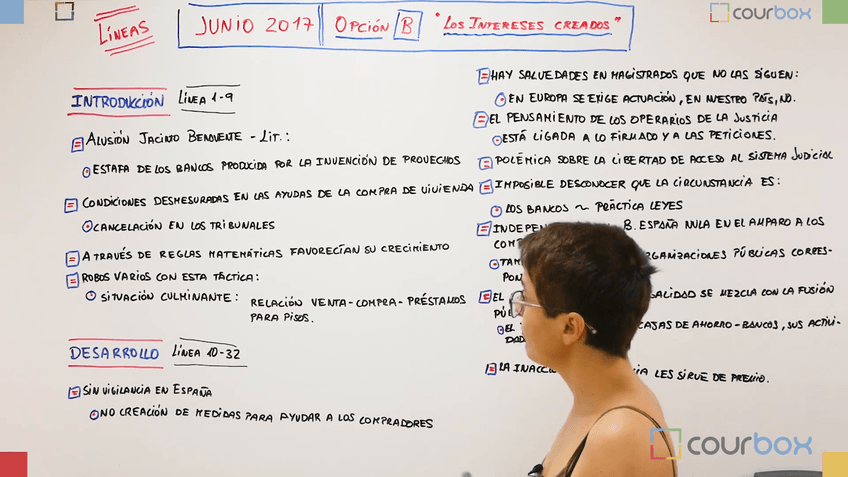 courbox
LÍNEAS
JUNIO 2017 OPCIÓN B "LOS INTERESES CREADOS"
INTRODUCCIÓN LÍNEA 1-9
ALUSIÓN JACINTO BENAVENTE - LIT.:
ESTAFA DE LOS BANCOS PRODUCIDA POR LA INVENCIÓN DE PROVECHOS
CONDICIONES DESMESURADAS EN LAS AYUDAS DE LA COMPRA DE VIVIENDA
CANCELACIÓN EN LOS TRIBUNALES
A TRAVÉS DE REGLAS MATEMÁTICAS FAVORECÍAN SU CRECIMIENTO
ROBOS VARIOS CON ESTA TÁCTICA:
SITUACIÓN CULMINANTE: RELACIÓN VENTA-COMPRA-PRÉSTAMOS
PARA PISOS.
DESARROLLO LÍNEA 10-32
SIN VIGILANCIA EN ESPAÑA
NO CREACIÓN DE MEDIDAS PARA AYUDAR A LOS COMPRADORES
HAY SALVEDADES EN MAGISTRADOS QUE NO LAS SIGUEN:
EN EUROPA SE EXIGE ACTUACIÓN, EN NUESTRO PAÍS, NO.
EL PENSAMIENTO DE LOS OPERARIOS DE LA JUSTICIA
ESTÁ LIGADA A LO FIRMADO Y A LAS PETICIONES.
POLÉMICA SOBRE LA LIBERTAD DE ACCESO AL SISTEMA JUDICIAL
IMPOSIBLE DESCONOCER QUE LA CIRCUNSTANCIA ES:
LOS BANCOS ~ PRÁCTICA LEYES
B. ESPAÑA NULA EN EL AMPARO A LOS
ORGANIZACIONES PÚBLICAS CORRES-
EL SE MEZCLA CON LA FUSIÓN
EL CAJAS DE AHORRO-BANCOS, SUS ACTIVI-
LA LES SIRVE DE PREMIO.
courbox